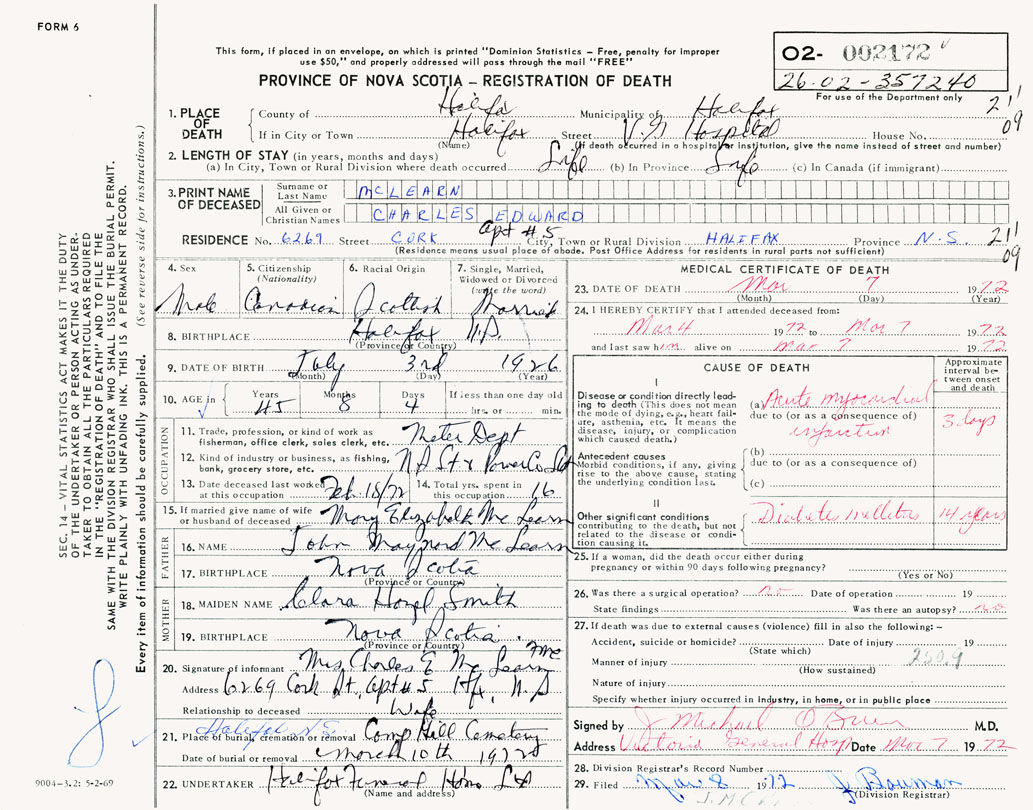 FORM 6
This form, if placed in an envelope, on which is printed "Dominion Statistics – Free, penalty for improper
use $50," and properly addressed will pass through the mail "FREE"
PROVINCE OF NOVA SCOTIA – REGISTRATION OF DEATH
O2- 002172
26-02-357240
For use of the Department only
211
09
1. PLACE OF DEATH
County of Halifax Municipality of Halifax
If in City or Town Halifax Street V.G Hospital House No.
(Name) (If death occurred in a hospital or institution, give the name instead of street and number)
2. LENGTH OF STAY (in years, months and days)
(a) In City, Town or Rural Division where death occurred Life (b) In Province Life (c) In Canada (if immigrant)
3. PRINT NAME OF DECEASED
Surname or Last Name MCLEARN
All Given or Christian Names CHARLES EDWARD
Apt #5
RESIDENCE No. 6269 Street CORK City, Town or Rural Division HALIFAX Province N.S.
(Residence means usual place of abode. Post Office Address for residents in rural parts not sufficient)
211
09
4. Sex Male
5. Citizenship (Nationality) Canadian
6. Racial Origin Scottish
7. Single, Married, Widowed or Divorced (write the word) Married
8. BIRTHPLACE Halifax N.S.
(Province or Country)
9. DATE OF BIRTH July 3rd 1926
(Month) (Day) (Year)
10. AGE in Years 45 Months 8 Days 4 If less than one day old
hrs. or min.
OCCUPATION
11. Trade, profession, or kind of work as
fisherman, office clerk, sales clerk, etc. Meter Dept
12. Kind of industry or business, as fishing,
bank, grocery store, etc. N S Lt & Power Co Ltd
13. Date deceased last worked
at this occupation Feb. 18/72
14. Total yrs. spent in
this occupation 16
15. If married give name of wife
or husband of deceased Mary Elizabeth Mc Learn
FATHER
16. NAME John Maynard Mc Learn
17. BIRTHPLACE Nova Scotia
(Province or Country)
MOTHER
18. MAIDEN NAME Clara Hazel Smith
19. BIRTHPLACE Nova Scotia.
(Province or Country)
20. Signature of informant Mrs. Charles E Mc Learn
Address 6269 Cork St, Apt #5 Hfx, N.S
Relationship to deceased Wife
Halifax N.S.
21. Place of burial, cremation or removal Camp Hill Cemetery
Date of burial or removal March 10th 1972
22. UNDERTAKER Halifax Funeral Home Ltd
(Name and address)
MEDICAL CERTIFICATE OF DEATH
23. DATE OF DEATH Mar 7 1972
(Month) (Day) (Year)
24. I HEREBY CERTIFY that I attended deceased from:
Mar 4 1972 to Mar 7 1972
and last saw him alive on Mar 7 1972
CAUSE OF DEATH
Approximate interval between onset and death
I
Disease or condition directly leading to death (This does not
mean the mode of dying, e.g., heart failure, asthenia, etc. It means the
disease, injury, or complication
which caused death.)
(a) Acute myocardial
due to (or as a consequence of)
infarction
3 days
Antecedent causes
Morbid conditions, if any, giving
rise to the above cause, stating
the underlying condition last.
(b)
due to (or as a consequence of)
(c)
II
Other significant conditions
contributing to the death, but not
related to the disease or condition causing it.
Diabetes mellitus 14 years
25. If a woman, did the death occur either during
pregnancy or within 90 days following pregnancy?
(Yes or No)
26. Was there a surgical operation? no Date of operation 19
State findings Was there an autopsy? no
27. If death was due to external causes (violence) fill in also the following: –
Accident, suicide or homicide? Date of injury 19
(State which)
250.9
Manner of injury
(How sustained)
Nature of injury
Specify whether injury occurred in Industry, in home, or in public place
Signed by J Michael O'Brien M.D.
Address Victoria General Hosp Date Mar 7 1972
28. Division Registrar's Record Number
29. Filed Mar 8 1972 J. Bauman
(Division Registrar)
SEC. 14 – VITAL STATISTICS ACT MAKES IT THE DUTY
OF THE UNDERTAKER OR PERSON ACTING AS UNDERTAKER
TO OBTAIN ALL THE PARTICULARS REQUIRED
IN THE "REGISTRATION OF DEATH" AND TO FILE THE
SAME WITH THE DIVISION REGISTRAR WHO SHALL ISSUE THE BURIAL PERMIT.
WRITE PLAINLY WITH UNFADING INK. THIS IS A PERMANENT RECORD.
Every item of information should be carefully supplied. (See reverse side for instructions.)
9004-3.2: 5-2-69